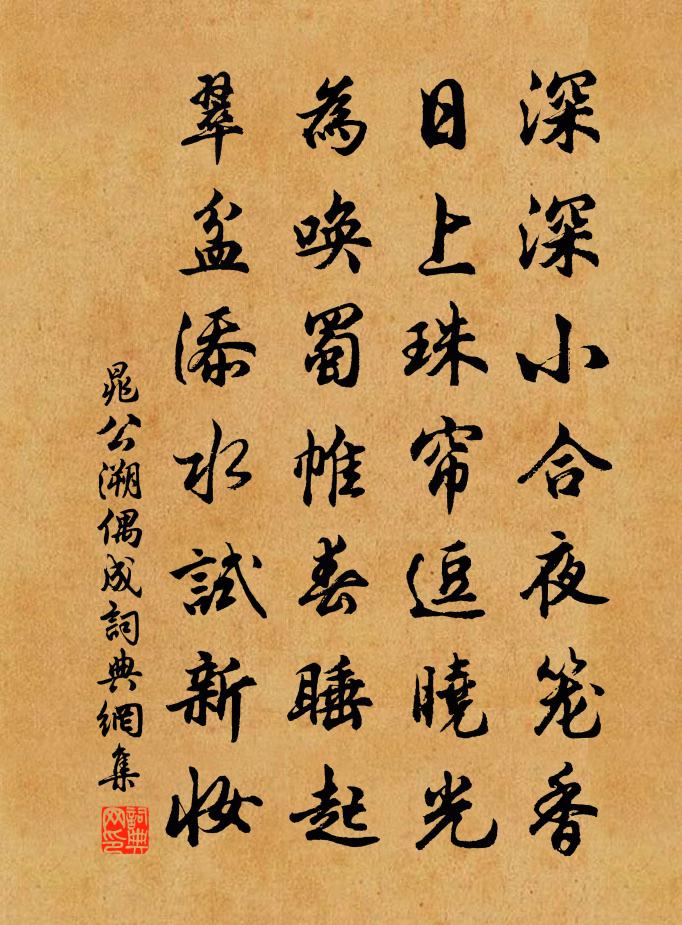 深深小合夜笼香
日上珠帘逗曉光
為唤蜀帷春睡起
翠盆添水試新妆
晁公溯偶成詞典網集
詞典
网印